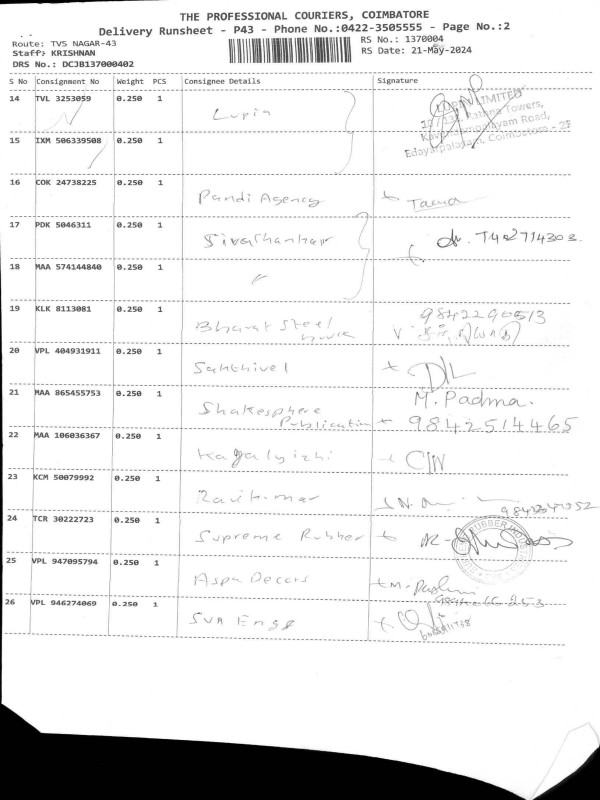 THE PROFESSIONAL COURIERS, COIMBATORE
Delivery Runsheet - P43 - Phone No.:0422-3505555 - Page No.:2
Route: TVS NAGAR-43 RS No.: 1370004
Staff: KRISHNAN RS Date: 21-May-2024
DRS No.: DCJB137000402
S No Consignment No Weight PCS Consignee Details Signature
14 TVL 3253059 0.250 1 Lupin
LUPIN LIMITED
Rathna Towers,
Road,
Edayarpalayam, Coimbatore - 25
15 IXM 506339508 0.250 1
16 COK 24738225 0.250 1 Pandi Agency
17 PDK 5046311 0.250 1 Sivashankar
18 MAA 574144840 0.250 1 "
19 KLK 8113081 0.250 1 Bharat Steel 9842290513
20 VPL 404931911 0.250 1 Sakthivel
21 MAA 865455753 0.250 1 Shakesphere M. Padma.
Publication 9842514465
22 MAA 106036367 0.250 1
23 KCM 50079992 0.250 1 Ravikumar
24 TCR 30222723 0.250 1 Supreme Rubber
RUBBER
25 VPL 947095794 0.250 1 Aspa Decors
26 VPL 946274069 0.250 1 SVA Engg